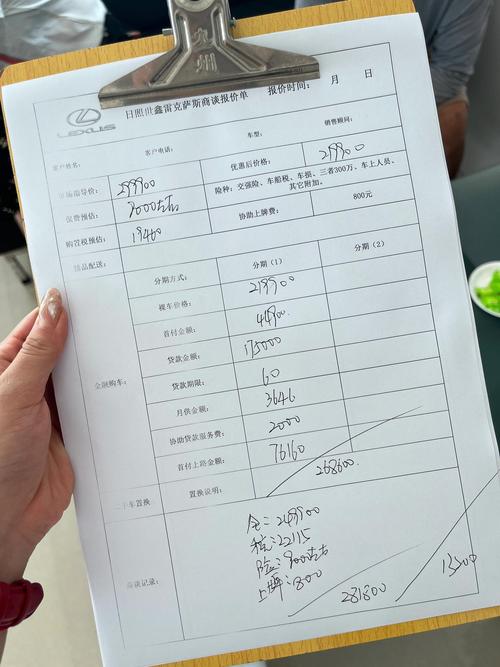 九州
LEXUS
日照世鑫雷克萨斯商谈报价单 报价时间： 月 日
客户姓名： 客户电话： 车型： 销售顾问：
市场指导价： 299900 优惠后价格： 219900
保费预估： 9000左右 险种：交强险、车船税、车损、三者300万、车上人员、
其它附加。
购置税预估： 19460 协助上牌费： 800元
精品配送：
金融购车：
分期方式： 分期（1） 分期（2）
裸车价格： 219900
首付金额： 44900.
贷款金额： 175000
贷款期限： 60
月供金额： 3646
协助贷款服务费： 2000
首付上路金额： 76160
二手车置换 置换说明： 268600.
商谈记录：
全：249900
税：22115
险：900左右
上牌：800
281800
13500